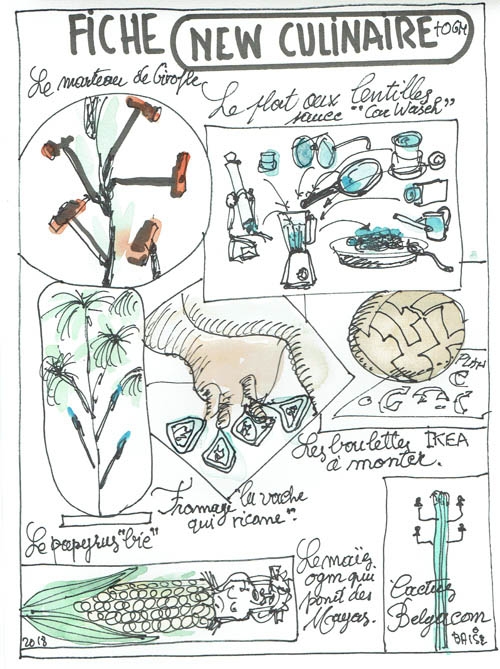 FICHE NEW CULINAIRE +OGM
Le marteau de Girofle
Le plat aux lentilles
sauce "Car Wasch"
PLAN
Les boulettes IKEA
à monter.
Fromage "la vache
qui ricane".
Le papyrus "bic"
Le maïs
ogm qui
pond des
Mayas.
Cactus
Belgacom
BAISE
2018